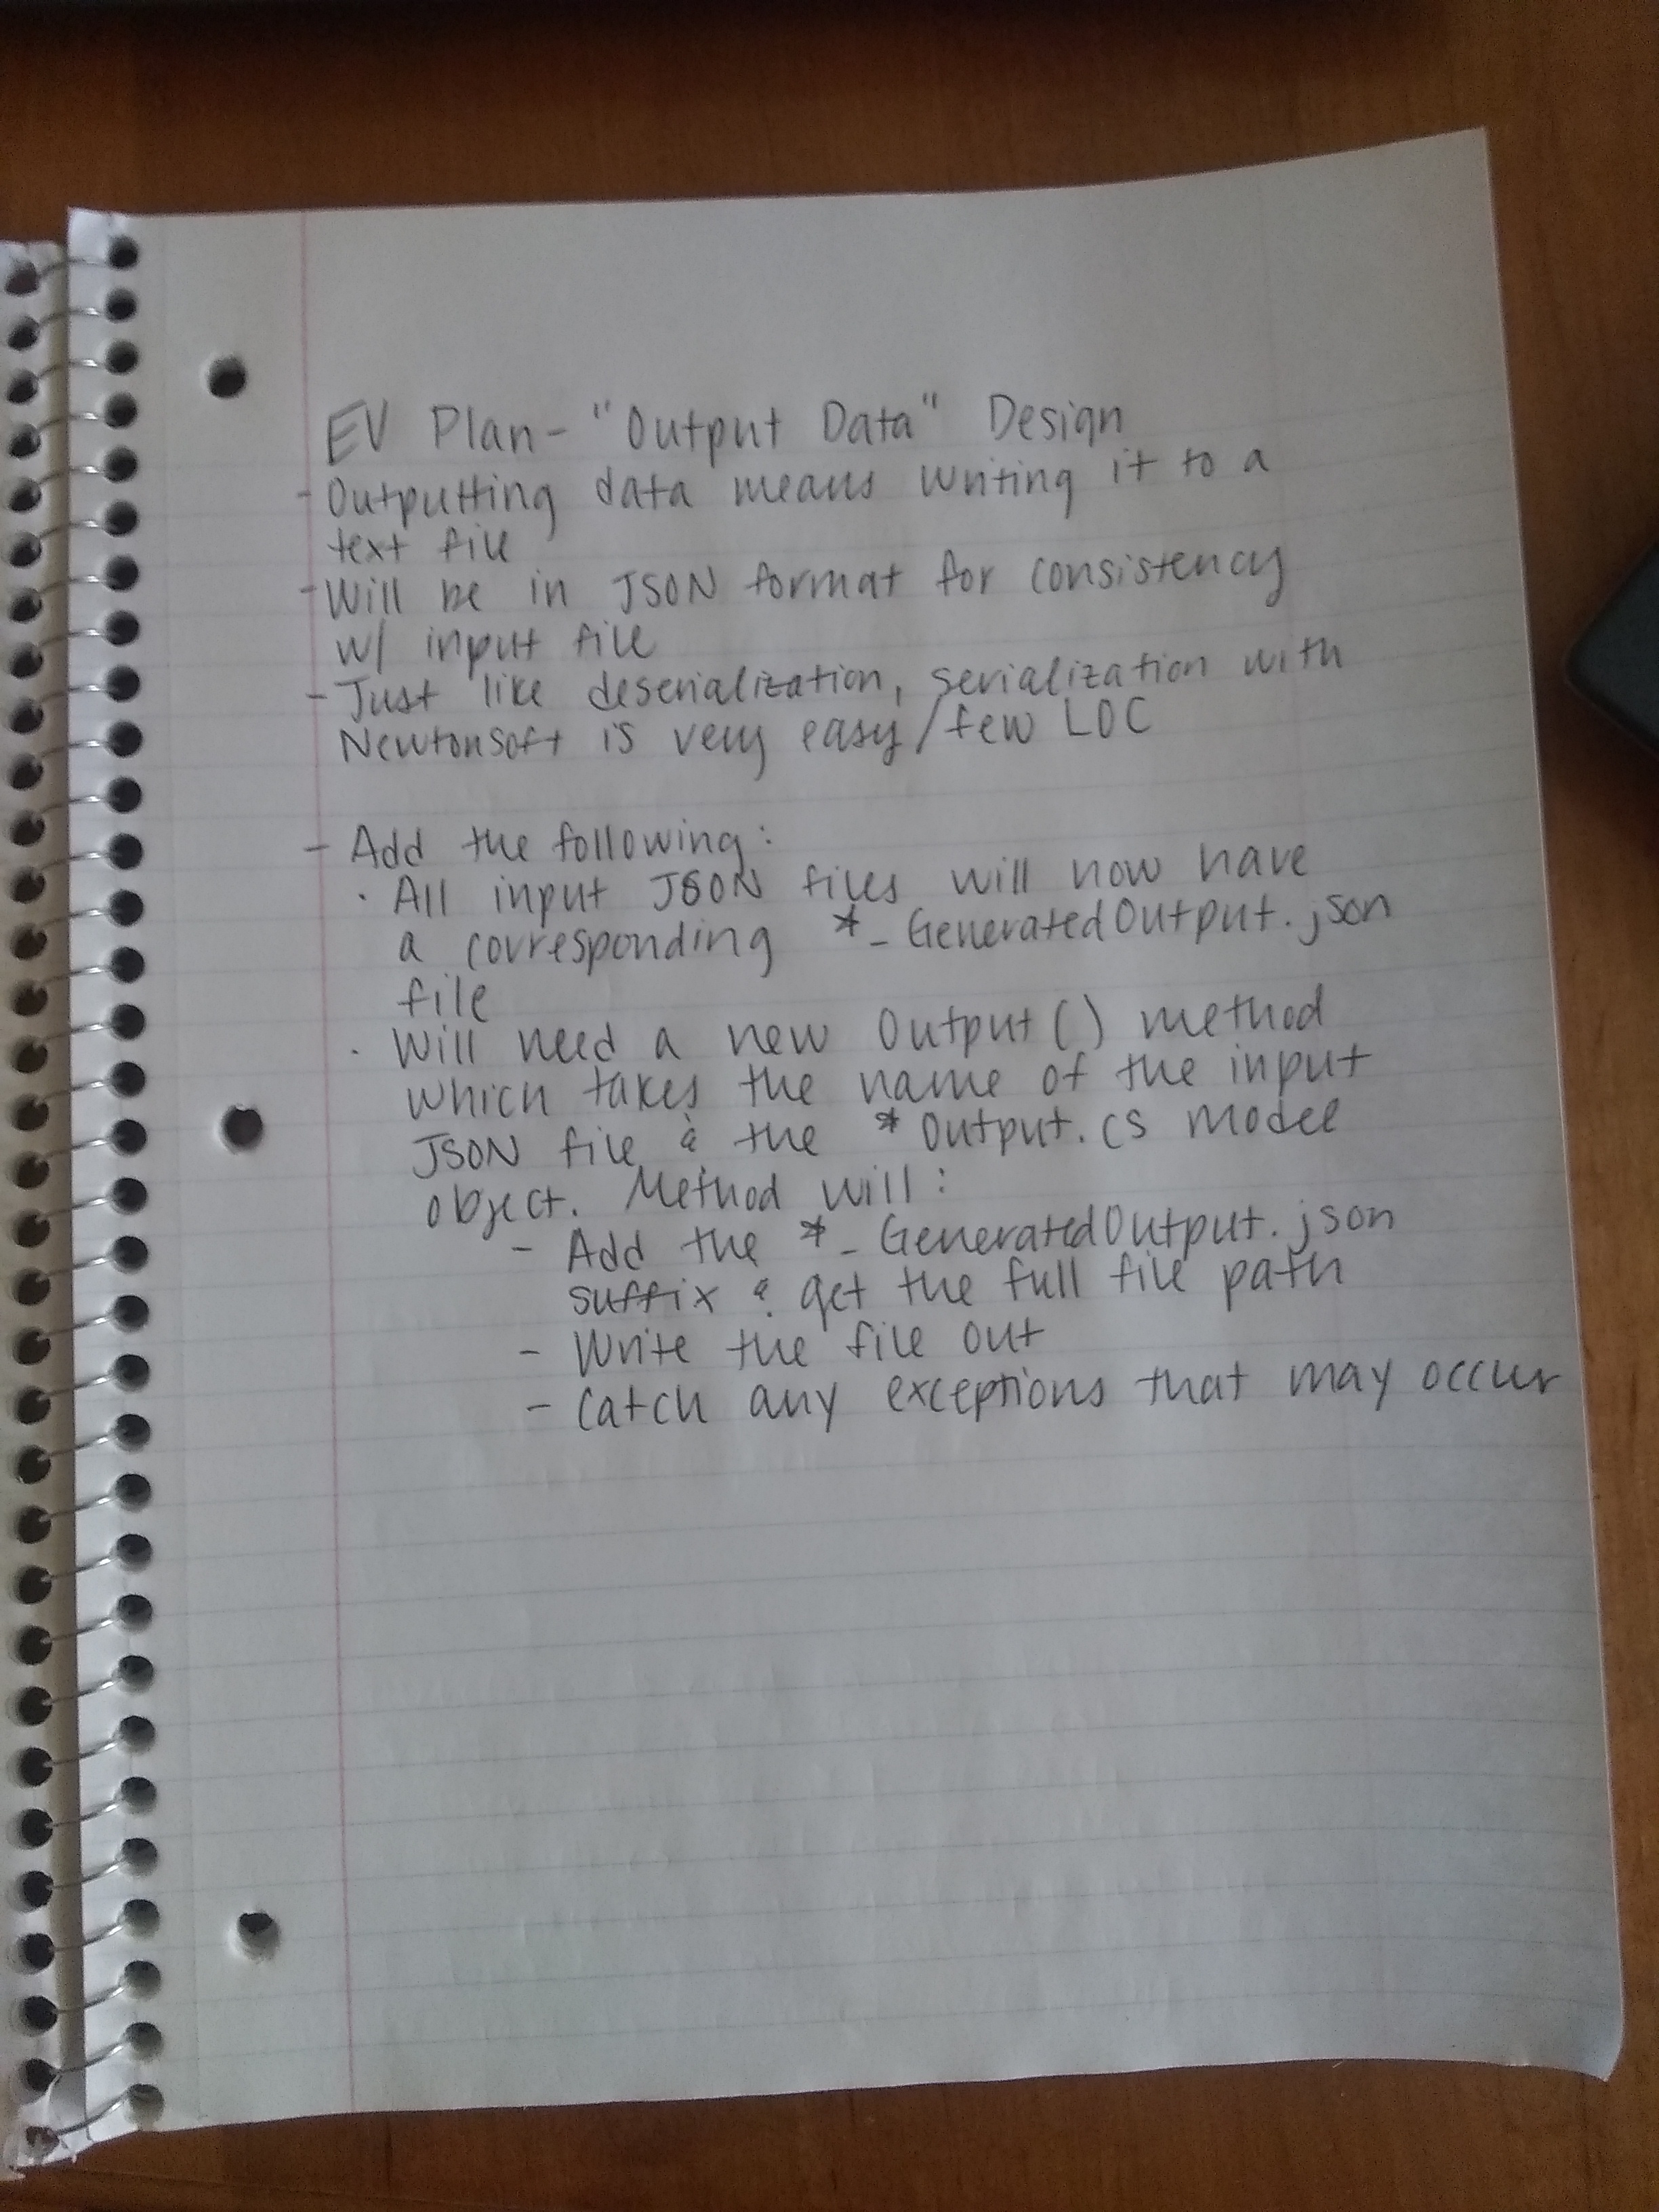 EV Plan - "Output Data" Design
- Outputting data means writing it to a
text file
- Will be in JSON format for consistency
w/ input file
- Just like deserialization, serialization with
Newtonsoft is very easy/few LOC
- Add the following:
· All input JSON files will now have
a corresponding *_GeneratedOutput.json
file
· Will need a new Output() method
which takes the name of the input
JSON file & the *Output.cs model
object. Method will:
- Add the *_GeneratedOutput.json
suffix & get the full file path
- Write the file out
- Catch any exceptions that may occur